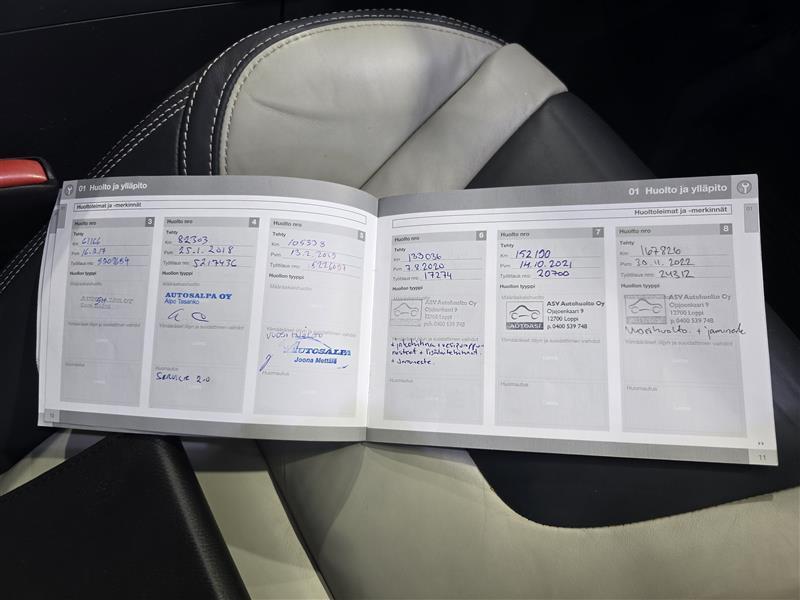 01 Huolto ja ylläpito
Huoltoleimat ja -merkinnät
Huolto nro 3
Tehty
Km 61166
Pvm 16.3.17
Työtilaus nro
Huollon tyyppi
Määräaikaishuolto
Huomautus
Huolto nro 4
Tehty
Km 82303
Pvm 25.1.2018
Työtilaus nro 5217436
Huollon tyyppi
Määräaikaishuolto
AUTOSALPA OY
Ylimääräiset öljyn ja suodattimen vaihdot
Huomautus
SERVICE 2.0
Huolto nro 5
Tehty
Km 105338
Pvm 13.2.2019
Työtilaus nro
Huollon tyyppi
Määräaikaishuolto
Ylimääräiset öljyn ja suodattimen vaihdot
AUTOSALPA
Joona Mettälä
Huomautus
10
01 Huolto ja ylläpito
Huoltoleimat ja -merkinnät
01
Huolto nro 6
Tehty
Km 133036
Pvm 7.8.2020
Työtilaus nro 17274
Huollon tyyppi
Määräaikaishuolto
ASV Autohuolto Oy
Ojajoenkaari 9
12700 Loppi
puh. 0400 539 748
Ylimääräiset öljyn ja suodattimen vaihdot
+ jakohihna + vesipumppu
+ jarruneste.
Huomautus
Huolto nro 7
Tehty
Km 152190
Pvm 14.10.2021
Työtilaus nro 20700
Huollon tyyppi
Määräaikaishuolto
AUTOASI
ASV Autohuolto Oy
Ojajoenkaari 9
12700 Loppi
p. 0400 539 748
Ylimääräiset öljyn ja suodattimen vaihdot
Huomautus
Huolto nro 8
Tehty
Km 167826
Pvm 30.11.2022
Työtilaus nro 24312
Huollon tyyppi
Määräaikaishuolto
ASV Autohuolto Oy
Ojajoenkaari 9
12700 Loppi
p. 0400 539 748
Vuosihuolto + jarruneste
Ylimääräiset öljyn ja suodattimen vaihdot
Huomautus
11